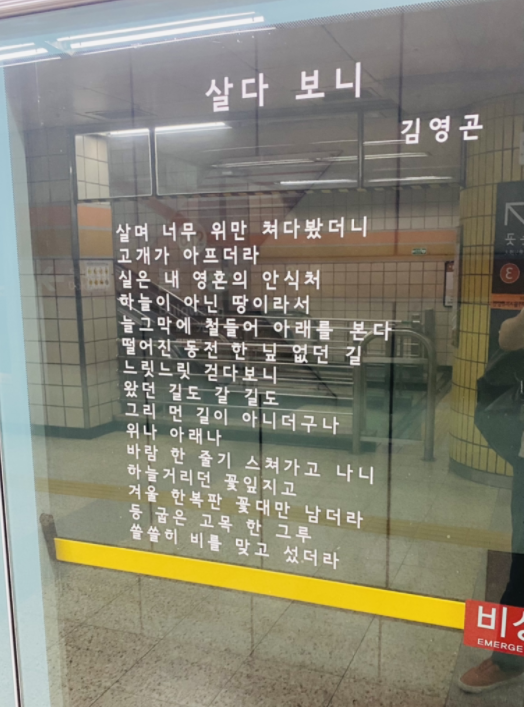 살다 보니
김영곤
살며 너무 위만 쳐다봤더니
고개가 아프더라
실은 내 영혼의 안식처
하늘이 아닌 땅이라서
늘그막에 철들어 아래를 본다
떨어진 동전 한 닢 없던 길
느릿느릿 걷다보니
왔던 길도 갈 길도
그리 먼 길이 아니더구나
위나 아래나
바람 한 줄기 스쳐가고 나니
하늘거리던 꽃잎지고
겨울 한복판 꽃대만 남더라
등 굽은 고목 한 그루
쓸쓸히 비를 맞고 섰더라
3